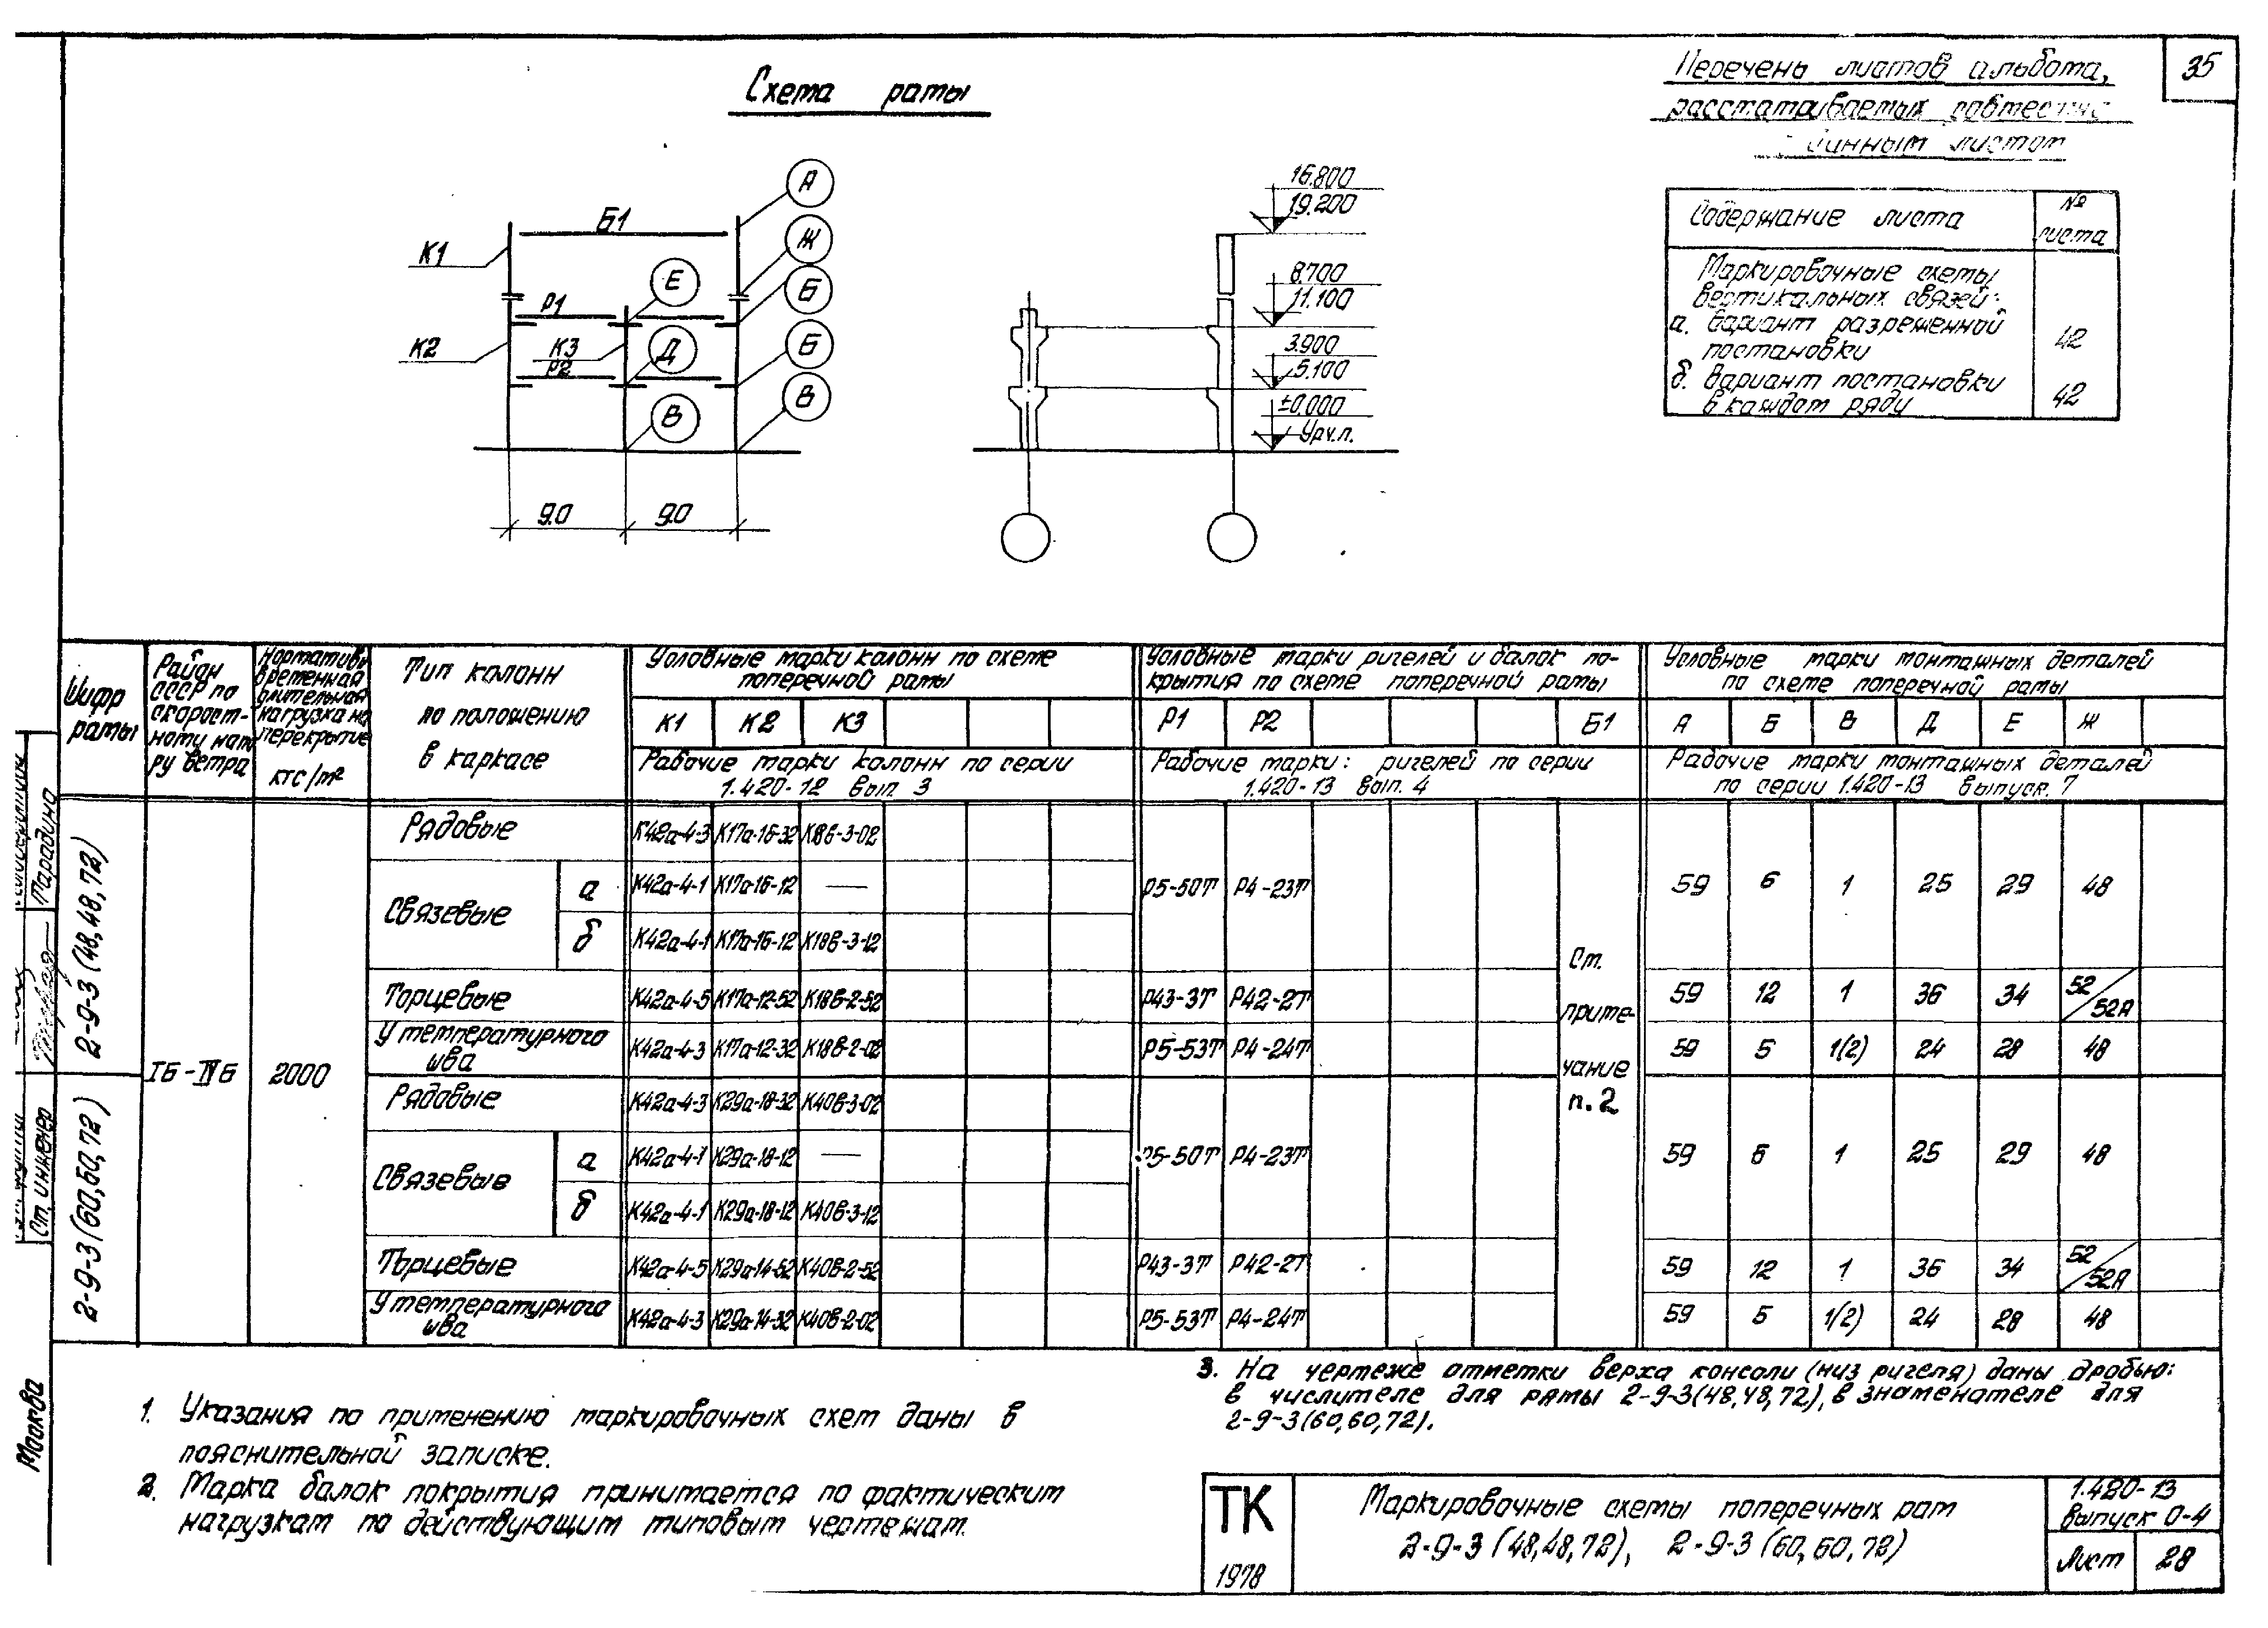 35
Схема рамы
Перечень листов альбома,
рассматриваемых совместно
данным листом
Содержание листа
№ листа
Маркировочные схемы
вертикальных связей:
а. Вариант разреженной
постановки
42
б. Вариант постановки
в каждом ряду
42
К1
Б1
А
Ж
Е
Б
Р1
К2
К3
Р2
Д
Б
В
В
9.0 9.0
16.800
19.200
8.700
11.100
3.900
5.100
±0.000
Ур.ч.п.
Шифр рамы
Район СССР по скорост-ному напо-ру ветра
Нормативн. временная длительная нагрузка на перекрытие кгс/м²
Тип колонн по положению в каркасе
Условные марки колонн по схеме
поперечной рамы
К1 К2 К3
Рабочие марки колонн по серии
1.420-12 вып. 3
Условные марки ригелей и балок по-
крытия по схеме поперечной рамы
Р1 Р2 Б1
Рабочие марки: ригелей по серии
1.420-13 вып. 4
Условные марки монтажных деталей
по схеме поперечной рамы
А Б В Д Е Ж
Рабочие марки монтажных деталей
по серии 1.420-13 выпуск. 7
2-9-3 (48,48,72)
IБ-IVБ 2000
Рядовые К42а-4-3 К17а-16-32 К18в-3-02
Связевые
а К42а-4-1 К17а-16-12 —
Р5-50Т Р4-23Т 59 6 1 25 29 48
б К42а-4-1 К17а-16-12 К18в-3-12
Торцевые К42а-4-5 К17а-12-52 К18в-2-52 Р43-3Т Р42-2Т 59 12 1 36 34 52/52А
У температурного
шва К42а-4-3 К17а-12-32 К18в-2-02 Р5-53Т Р4-24Т 59 5 1(2) 24 28 48
См.
приме-
чание
п. 2
2-9-3 (60,60,72)
Рядовые К42а-4-3 К29а-18-32 К40в-3-02
Связевые
а К42а-4-1 К29а-18-12 —
Р5-50Т Р4-23Т 59 6 1 25 29 48
б К42а-4-1 К29а-18-12 К40в-3-12
Торцевые К42а-4-5 К29а-14-52 К40в-2-52 Р43-3Т Р42-2Т 59 12 1 36 34 52/52А
У температурного
шва К42а-4-3 К29а-14-32 К40в-2-02 Р5-53Т Р4-24Т 59 5 1(2) 24 28 48
1. Указания по применению маркировочных схем даны в
пояснительной записке.
2. Марка балок покрытия принимается по фактическим
нагрузкам по действующим типовым чертежам.
3. На чертеже отметки верха консоли (низ ригеля) даны дробью:
в числителе для рамы 2-9-3(48,48,72), в знаменателе для
2-9-3(60,60,72).
ТК
1978
Маркировочные схемы поперечных рам
2-9-3 (48,48,72), 2-9-3 (60,60,72)
1.420-13
Выпуск 0-4
Лист 28
Парадина
Ст. инженер
Москва